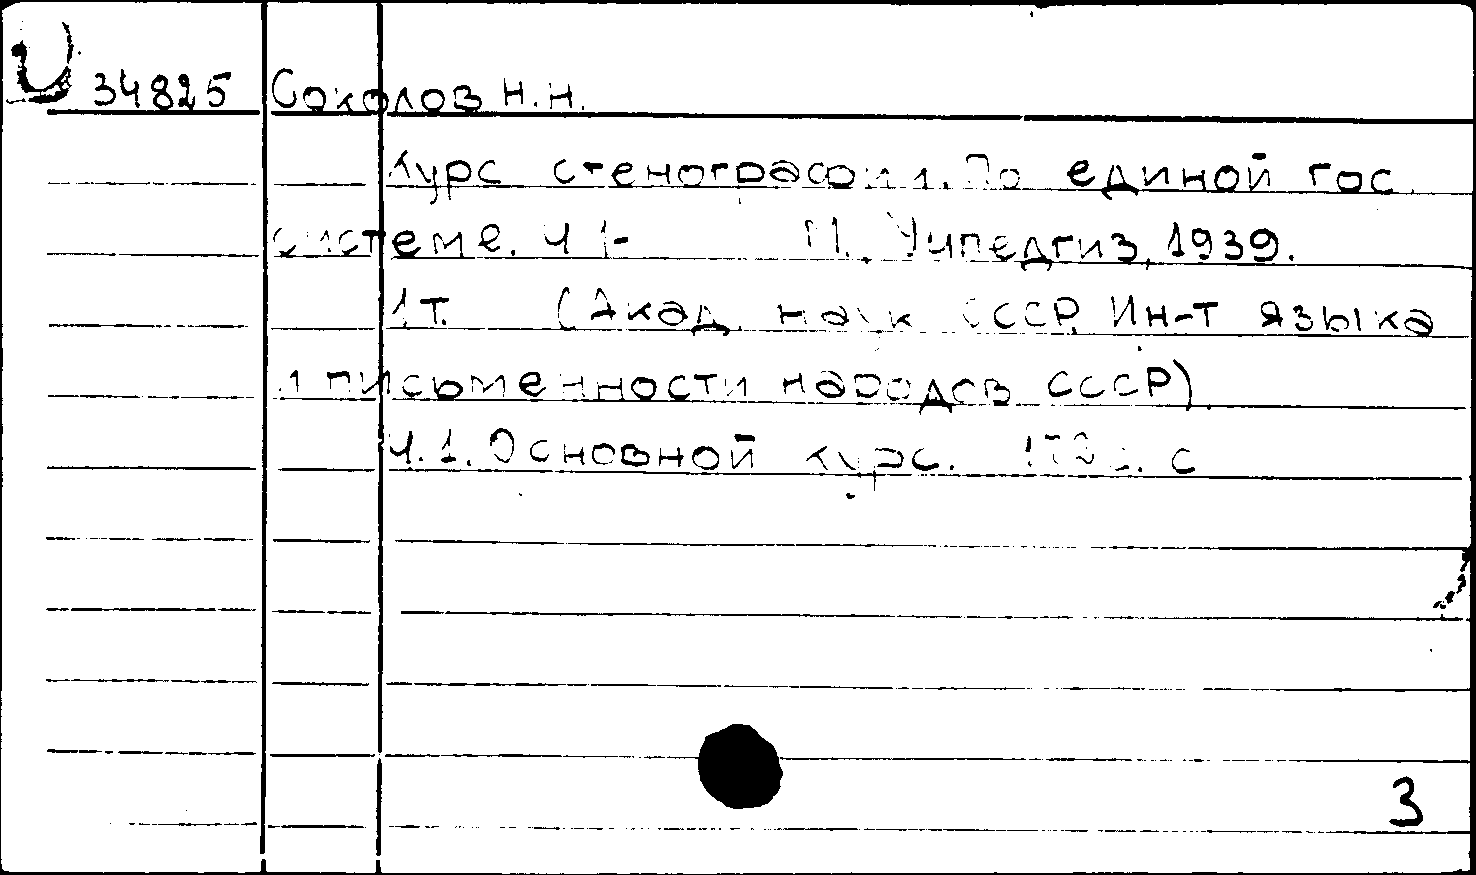 34825 Соколов Н.Н.
Курс стенографии. По единой гос.
системе. Ч 1- М., Учпедгиз, 1939.
1т. (Акад. наук СССР. Ин-т языка
и письменности народов СССР).
Ч.1. Основной курс. с
3